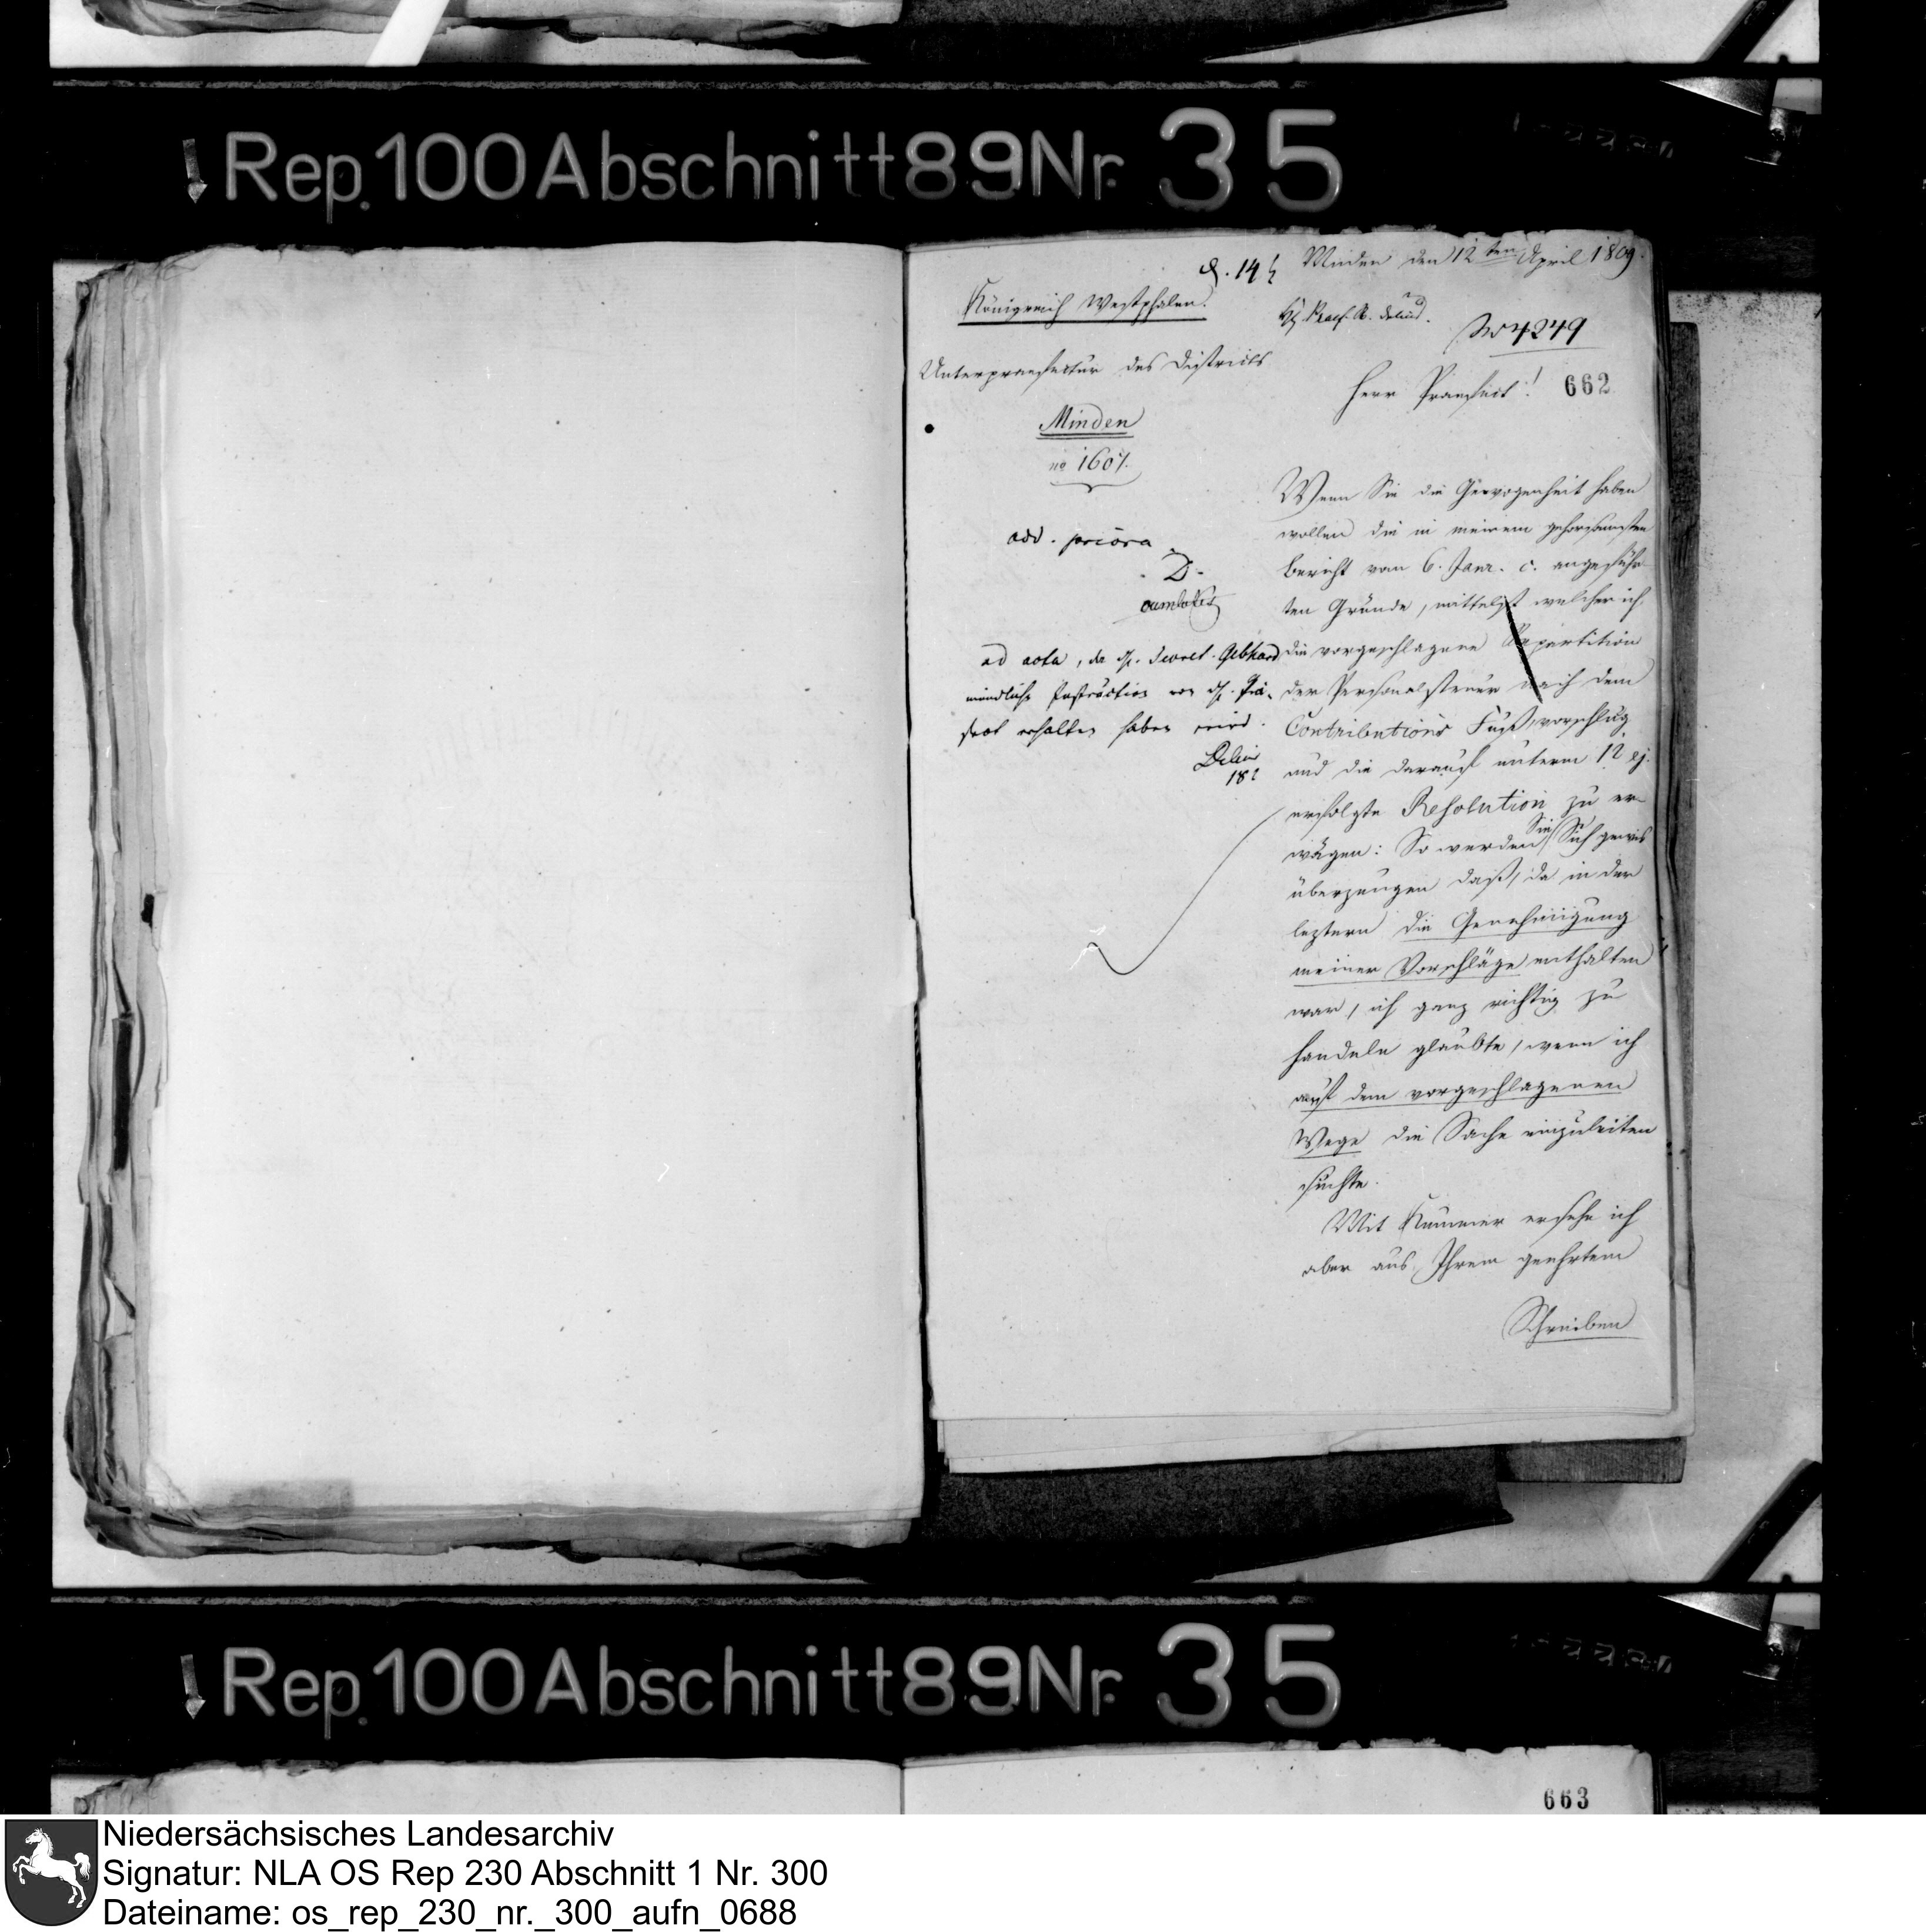 Rep. 100 Abschnitt 89 Nr. 35
Minden den 12ten April 1809.
Königreich Westphalen.
No 4249
Unterpraefectur des Districts
Herr Praefect!
662
Minden
no 1607.
add. priora
D.
ad acta, da H. Secret. Gebhard
mündliche Instruction von H. Prä-
fect erhalten haben wird.
Delius
18
Wenn Sie die Gewogenheit haben
wollen die in meinem gehorsamsten
Bericht vom 6. Janr. c. angeführ-
ten Gründe, mittelst welcher ich
die vorgeschlagene Repartition
der Personalsteuer nach dem
Contributions Fuß vorschlug
und die darauf unterm 12 ej.
erfolgte Resolution zu er-
wägen: So werden Sie Sich gewis
überzeugen daß, da in der
leztern die Genehmigung
meiner Vorschläge enthalten
war, ich ganz richtig zu
handeln glaubte, wenn ich
auf dem vorgeschlagenen
Wege die Sache einzuleiten
suchte.
Mit Kummer ersehe ich
aber aus Ihrem geehrtem
Schreiben
Rep. 100 Abschnitt 89 Nr. 35
663
Niedersächsisches Landesarchiv
Signatur: NLA OS Rep 230 Abschnitt 1 Nr. 300
Dateiname: os_rep_230_nr._300_aufn_0688